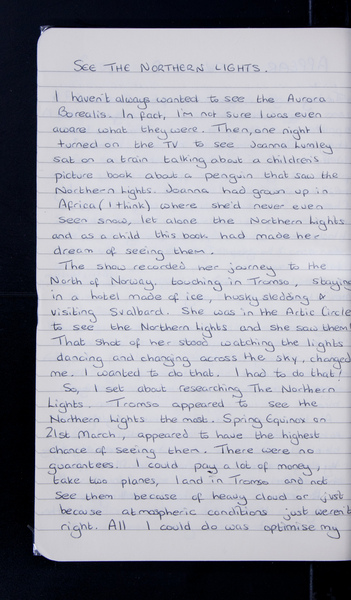 SEE THE NORTHERN LIGHTS.
I haven't always wanted to see the Aurora
Borealis. In fact, I'm not sure I was even
aware what they were. Then, one night I
turned on the TV to see Joanna Lumley
sat on a train talking about a children's
picture book about a penguin that saw the
Northern Lights. Joanna had grown up in
Africa (I think) where she'd never even
seen snow, let alone the Northern Lights
and as a child this book had made her
dream of seeing them.
The show recorded her journey to the
North of Norway, touching in Tromso, staying
in a hotel made of ice, husky sledding &
visiting Svalbard. She was in the Artic Circle
to see the Northern Lights and she saw them!
That shot of her stood watching the lights
dancing and changing across the sky, changed
me. I wanted to do that. I had to do that!
So, I set about researching The Northern
Lights. Tromso appeared to see the
Northern Lights the most. Spring Equinox on
21st March, appeared to have the highest
chance of seeing them. There were no
guarantees. I could pay a lot of money,
take two planes, land in Tromso and not
see them because of heavy cloud or just
because atmospheric conditions just weren't
right. All I could do was optimise my